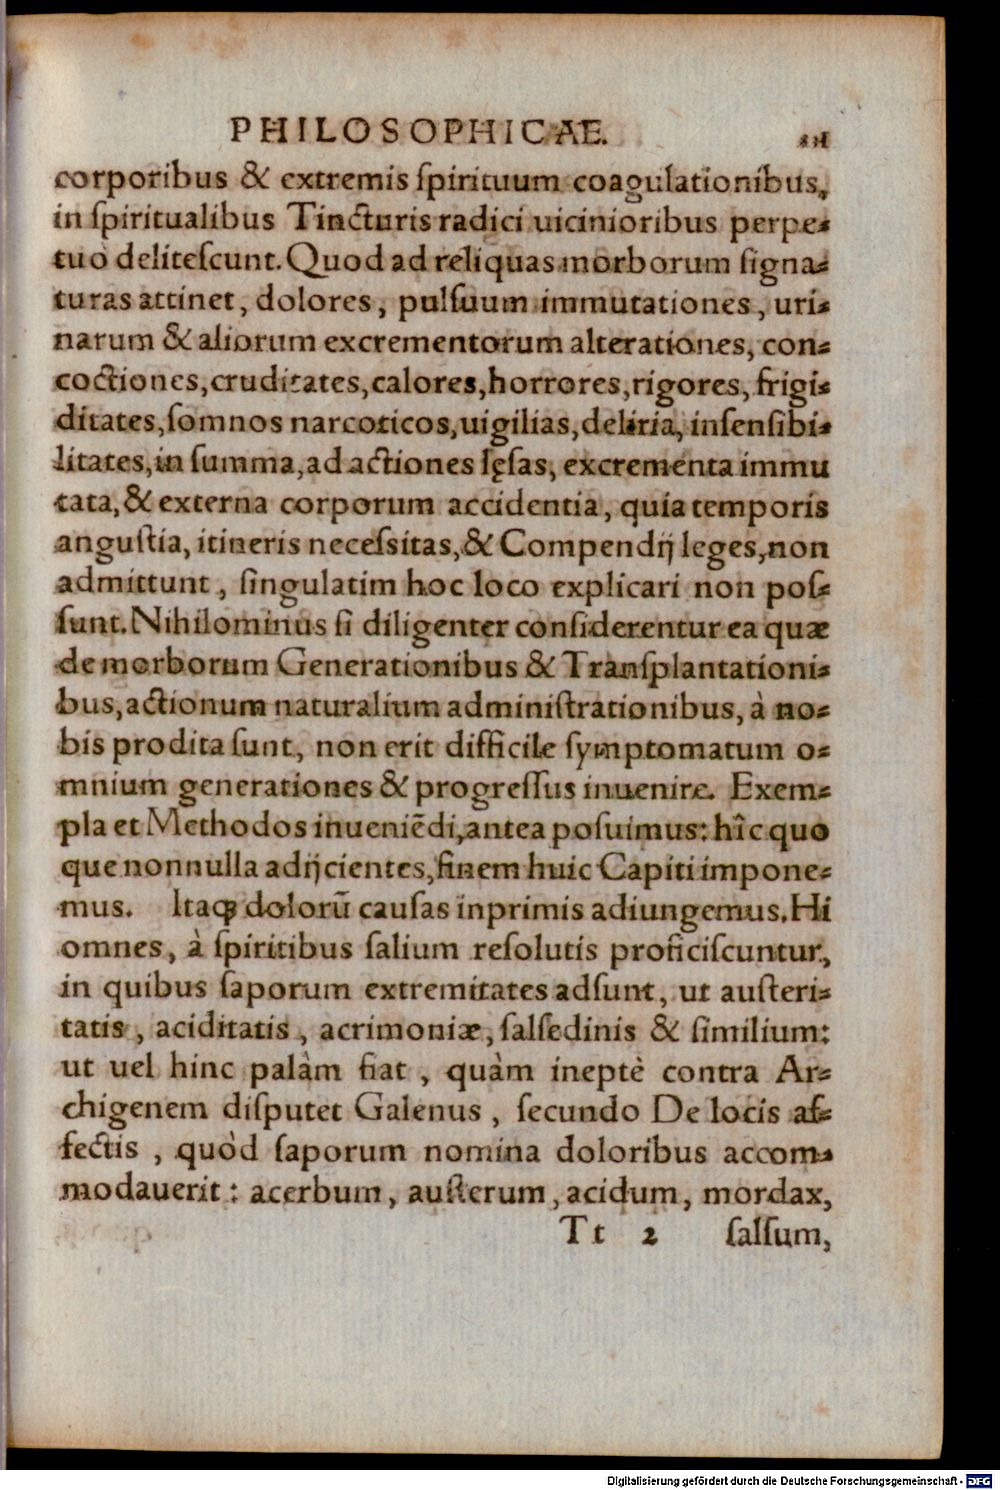 PHILOSOPHICAE.
corporibus & extremis ſpirituum coagulationibus,
in ſpiritualibus Tincturis radici uicinioribus perpe-
tuò deliteſcunt. Quod ad reliquas morborum ſigna-
turas attinet, dolores, pulſuum immutationes, uri-
narum & aliorum excrementorum alterationes, con-
coctiones, cruditates, calores, horrores, rigores, frigi-
ditates, ſomnos narcoticos, uigilias, deliria, inſenſibi-
litates, in ſumma, ad actiones lęſas, excrementa immu
tata, & externa corporum accidentia, quia temporis
anguſtia, itineris neceſsitas, & Compendij leges, non
admittunt, ſingulatim hoc loco explicari non poſ-
ſunt. Nihilominus ſi diligenter conſiderentur ea quæ
de morborum Generationibus & Tranſplantationi-
bus, actionum naturalium adminiſtrationibus, à no-
bis prodita ſunt, non erit difficile ſymptomatum o-
mnium generationes & progreſſus inuenire. Exem-
pla et Methodos inueniẽdi, antea poſuimus: hîc quo
que nonnulla adijcientes, finem huic Capiti impone-
mus. Itaqꝫ dolorũ cauſas inprimis adiungemus. Hi
omnes, à ſpiritibus ſalium reſolutis proficiſcuntur,
in quibus ſaporum extremitates adſunt, ut auſteri-
tatis, aciditatis, acrimoniæ, ſalſedinis & ſimilium:
ut uel hinc palàm fiat, quàm ineptè contra Ar-
chigenem diſputet Galenus, ſecundo De locis af-
fectis, quòd ſaporum nomina doloribus accom-
modauerit: acerbum, auſterum, acidum, mordax,
Tt 2 ſalſum,
Digitalisierung gefördert durch die Deutsche Forschungsgemeinschaft - DFG